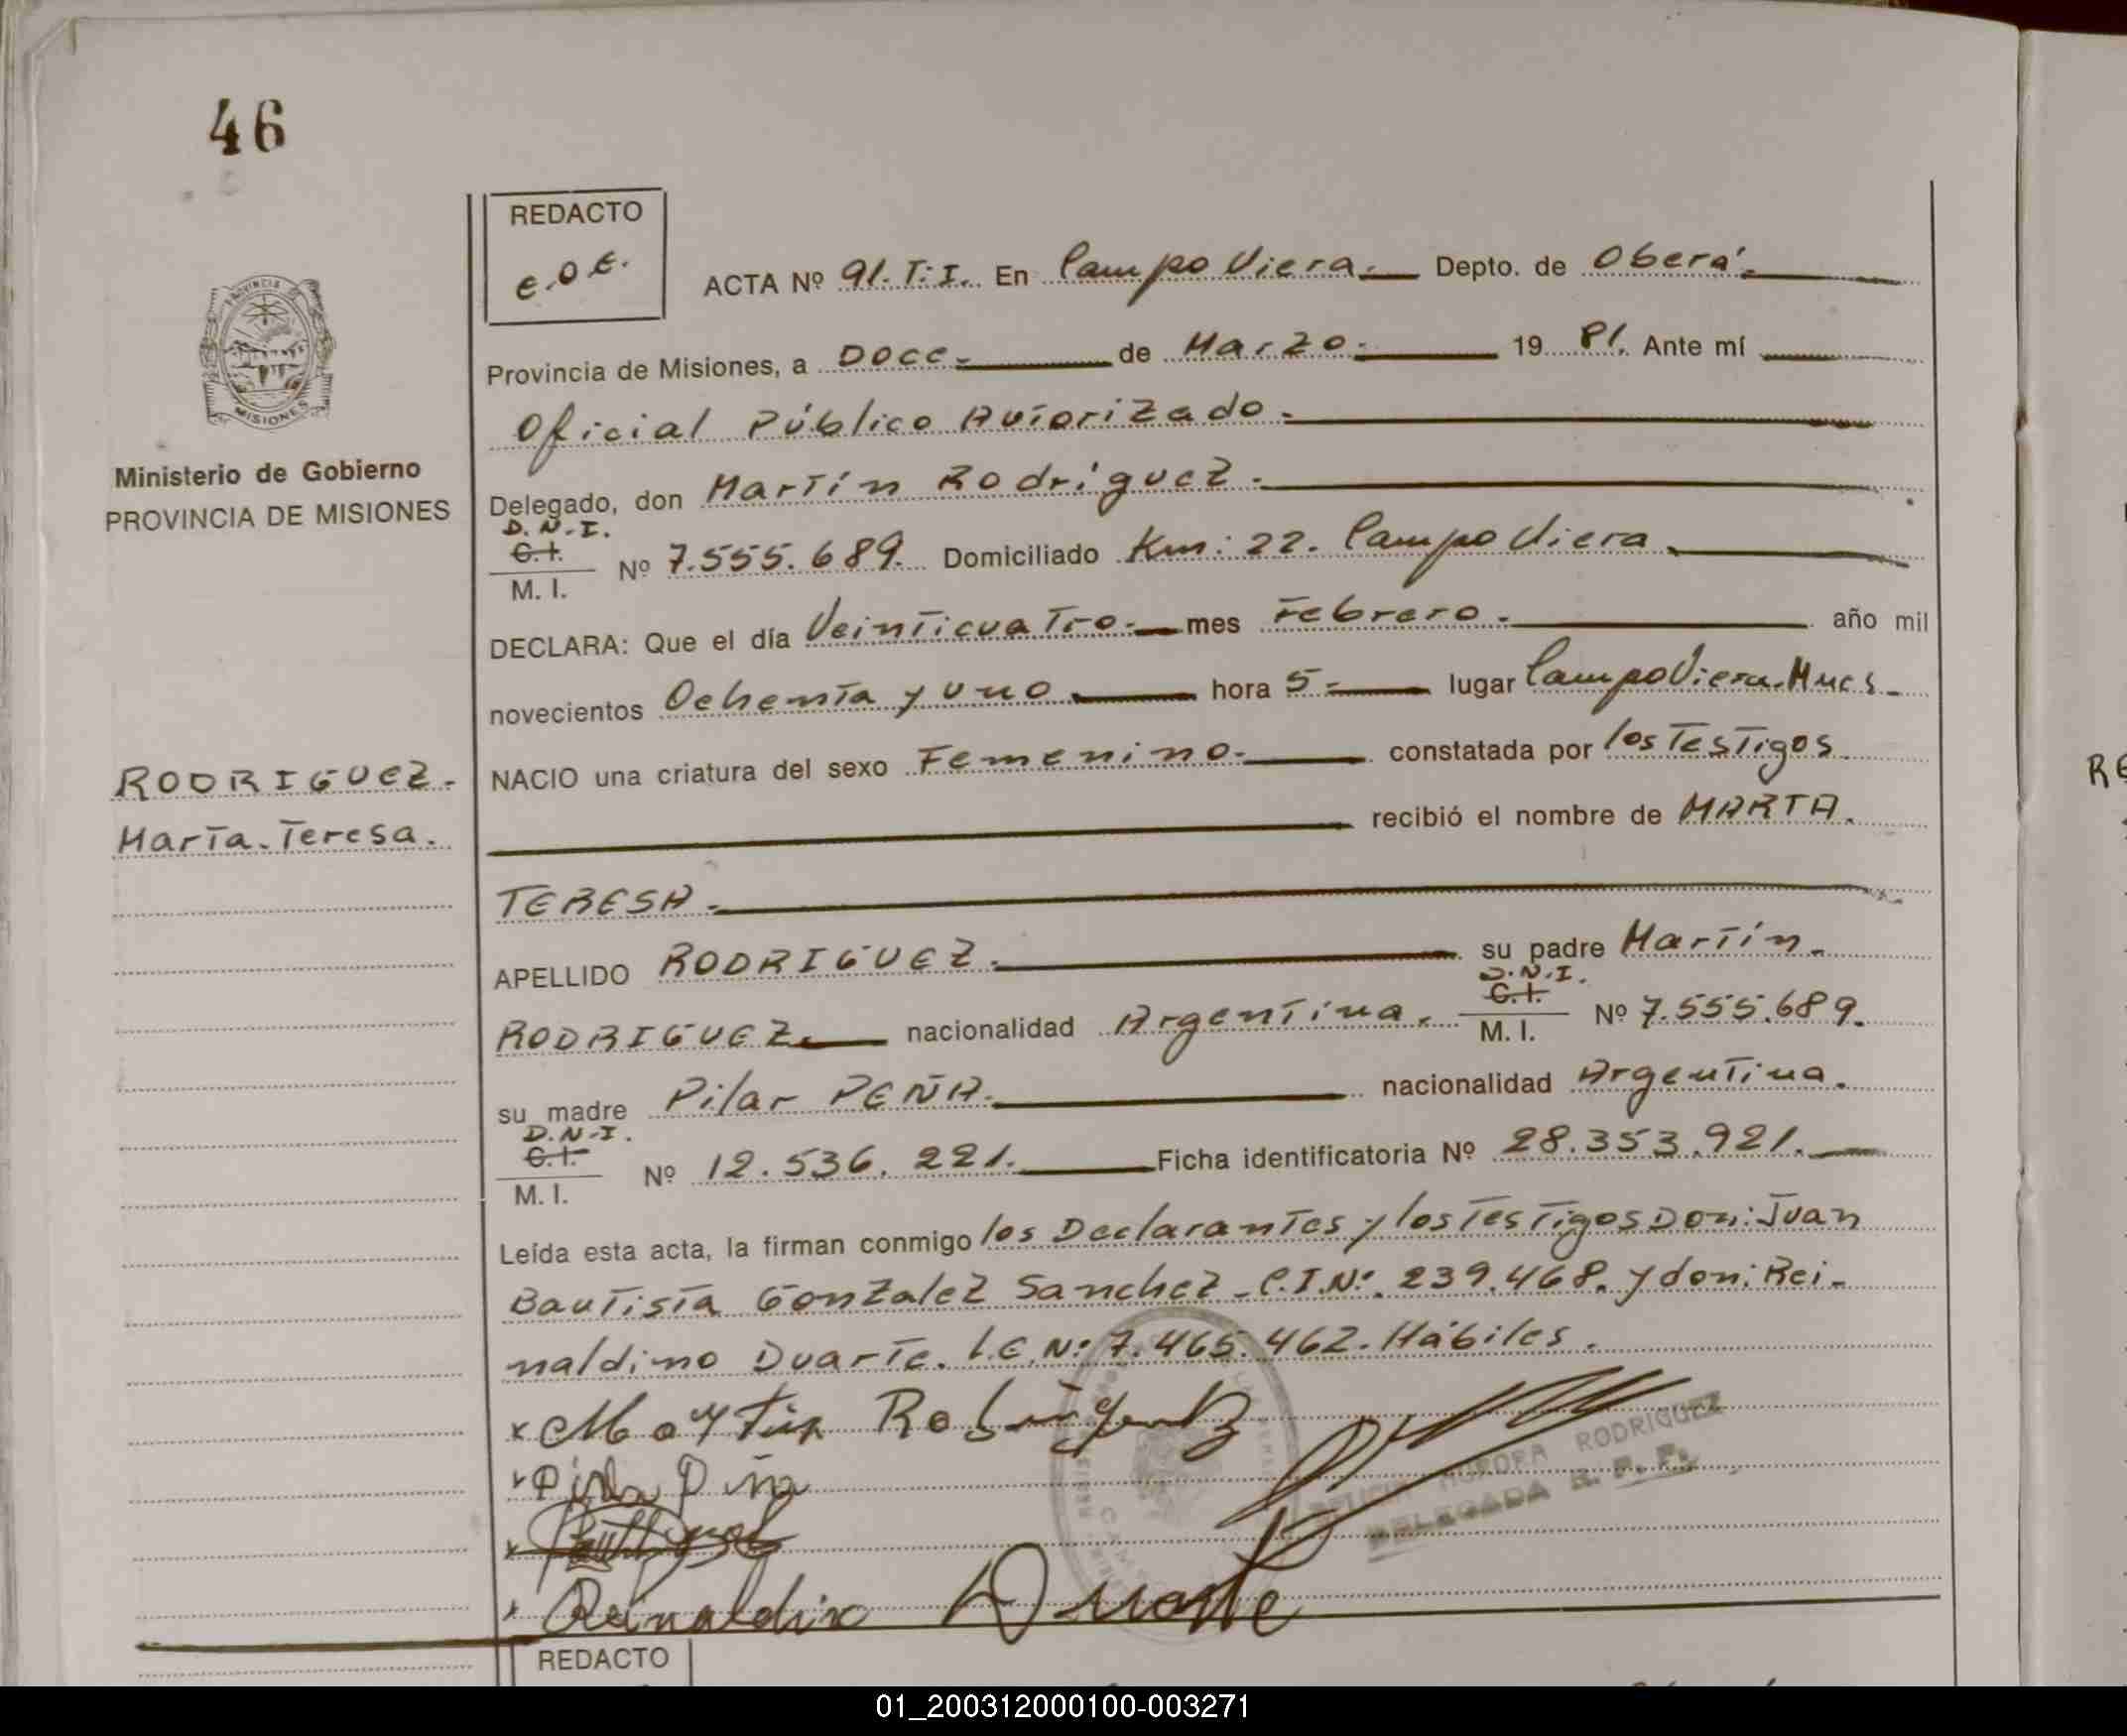 46
REDACTO
e.O.E.
ACTA Nº 91. T: I. En Campo Viera.- Depto. de Oberá.-
Provincia de Misiones, a Doce.- de Marzo.- 19 81. Ante mí
Oficial Público Autorizado.-
PROVINCIA DE
MISIONES
Ministerio de Gobierno
PROVINCIA DE MISIONES
Delegado, don Martín Rodríguez.-
D.N.I.
C.I.
M. I.
Nº 7.555.689. Domiciliado Km: 22. Campo Viera.
DECLARA: Que el día Veinticuatro.- mes Febrero.- año mil
novecientos Ochenta y uno.- hora 5- lugar Campo Viera. Mnes.
RODRIGUEZ.-
Marta.Teresa.
NACIO una criatura del sexo Femenino.- constatada por los Testigos
recibió el nombre de MARTA.
TERESA.-
APELLIDO RODRIGUEZ.- su padre Martín.
D.N.I.
C.I.
M. I.
RODRIGUEZ.- nacionalidad Argentina. Nº 7.555.689.
su madre Pilar PEÑA.- nacionalidad Argentina.
D.N.I.
C.I.
M. I.
Nº 12.536.221.- Ficha identificatoria Nº 28.353.921.-
Leída esta acta, la firman conmigo los Declarantes y los Testigos Don: Juan
Bautista Gonzalez Sanchez - C.I.Nº: 239.468. y don: Rei-
naldino Duarte. L.E.Nº: 7.465.462. Hábiles.
x Martin Rodriguez
x
x
x Reinaldino Duarte
AURORA RODRIGUEZ
DELEGADA R. P. P.
REDACTO
RE
01_200312000100-003271